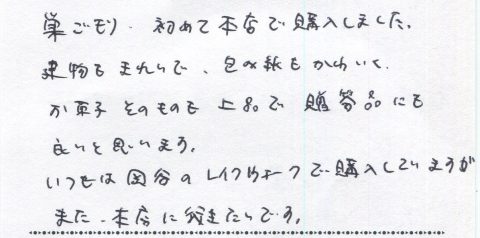 巣ごもり、初めて本店で購入しました。
建物もきれいで、包み紙もかわいく、
お菓子そのものも上品で贈答品にも
良いと思います。
いつもは岡谷のレイクウォークで購入していますが
また、本店に行きたいです。